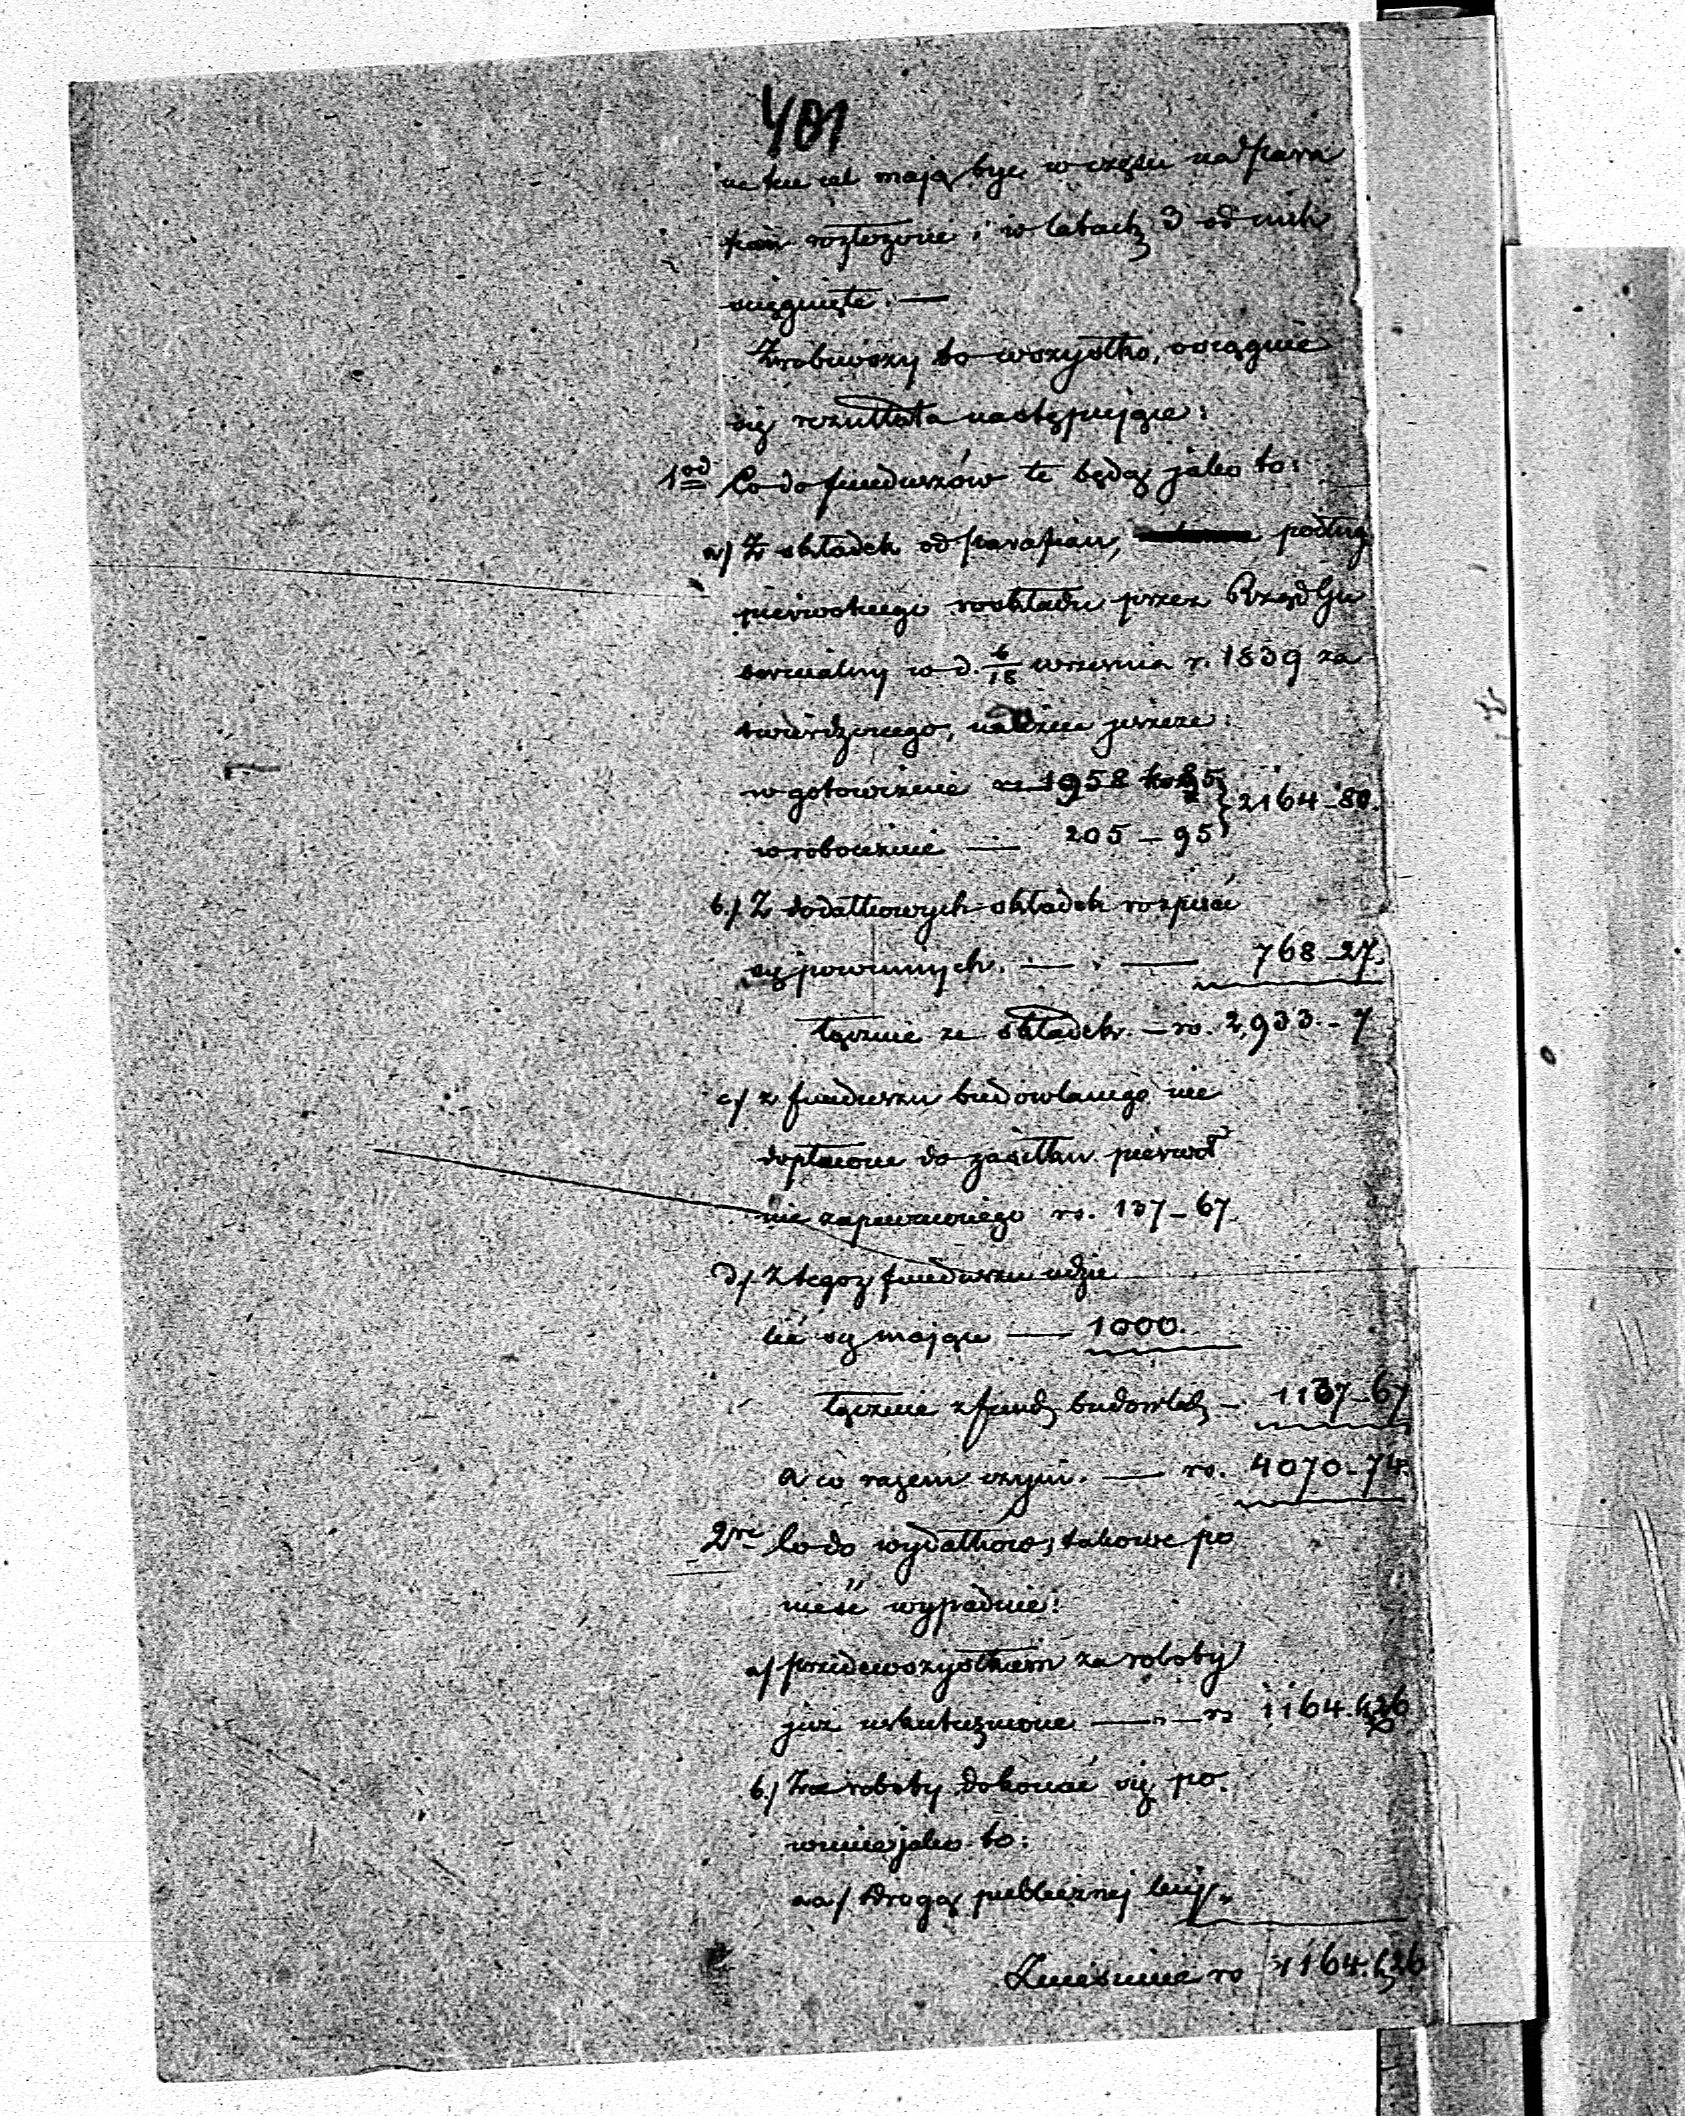 401
ne ten cel mają być w części na para
fian rozłożone i w latach 3 od nich
ściągnięte. —
Zrobiwszy to wszystko, osiągnie
się rezultata następujące:
1od Co do funduszów te będą jako to:
a/ Z składek od parafian, podług
pierwotnego rozkładu przez Rząd Gu
bernialny w d. 6/18 września r. 1839 za
twierdzonego, należne jeszcze:
w gotowiźnie rs 1958 ko 85 } 2164 - 80.
w robociznie — 205 - 95
b./ Z dodatkowych składek rozpisać
się powinnych. — . — 768 - 27.
łącznie ze składek — rs. 2,933. - 7
c/ z funduszu budowlanego nie
dopłacone do zasiłku pierwot
nie zapewnionego rs. 137 - 67
d/ Z tegoż funduszu udzie
lić się mające — 1000.
łącznie z fund. budowl. — 1137 - 67
a co razem czyni. — rs. 4070 - 74.
2re Co do wydatków, takowe po
nieść wypadnie:
a/ przedewszystkiem za roboty
już uskutecznione — . — rs 1164. k 26
b./ Za roboty dokonać się po.
winne jako to:
aa/ Drogą publicznej licyt.
Zniesienie rs 1164. k 26